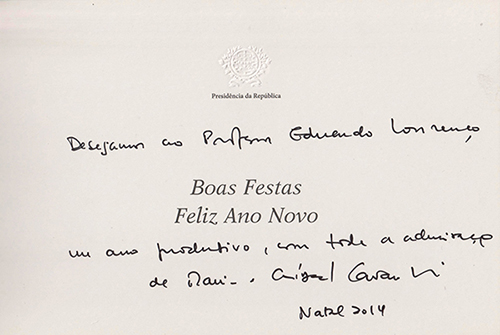 Presidência da República
Desejamos ao Professor Eduardo Lourenço
Boas Festas
Feliz Ano Novo
um ano produtivo, com toda a admiração
de Maria e Aníbal Cavaco Silva
Natal 2014